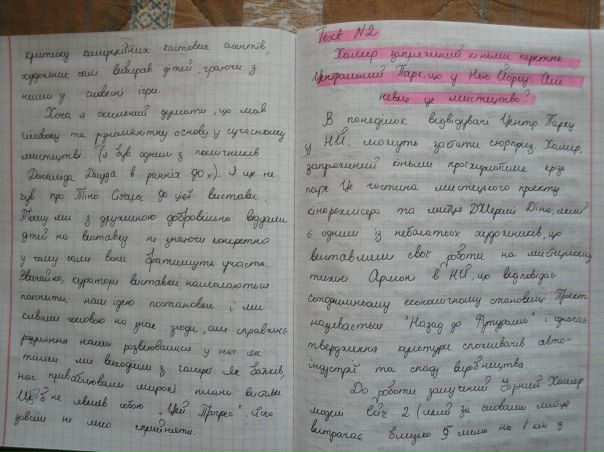 критику комерційних кастових агентів,
художник сам вибирав дітей, граючи з
ними у словесні ігри.
Хоча я схильний думати, що мав
глибоку та різноманітну основу у сучасному
мистецтві (я був одним з помічників
Дональда Джудда в ранніх 90х). Я ще не
чув про Тіно Сегала до цієї виставки.
Тому ми з дружиною добровільно віддали
дітей на виставку не знаючи конкретно
у чому саме вони братимуть участь.
Звичайно, куратори виставки намагаються
пояснити нам ідею постановки і ми
кивали головою на знак згоди, але справжнє
розуміння наши розвіювалися у нас як
тільки ми виходили з галереї. Як батьків,
нас приваблювали широкі плани виставки
Що з не являв собою "Цей Прогрес", його
зовсім не легко сприйняти.
Text №2
Хаммер запряжений кіньми перетне
Центральний Парк, що у Нью Йорку. Але
невже це мистецтво?
В понеділок відвідувачі Центр. Парку
у НЙ. можуть забати сюрприз Хамер,
запряжений кіньми проїжджатиме крізь
парк Це частина мистецького проекту
кінорежисера та митця Джеремі Діна, який
є одним із небагатьох художників, що
виставляли свої роботи на мистецькому
тижні Армої в НЙ, що відповідає
сьогоднішньому економічному становищі Проект
називається "Назад до Футурами" і
твердження культури споживачів авто-
індустрії та спаду виробництва
До роботи залучений чорний Хамер
моделі 2 (який за словами митця
витрачає близько 5 на 1 км з